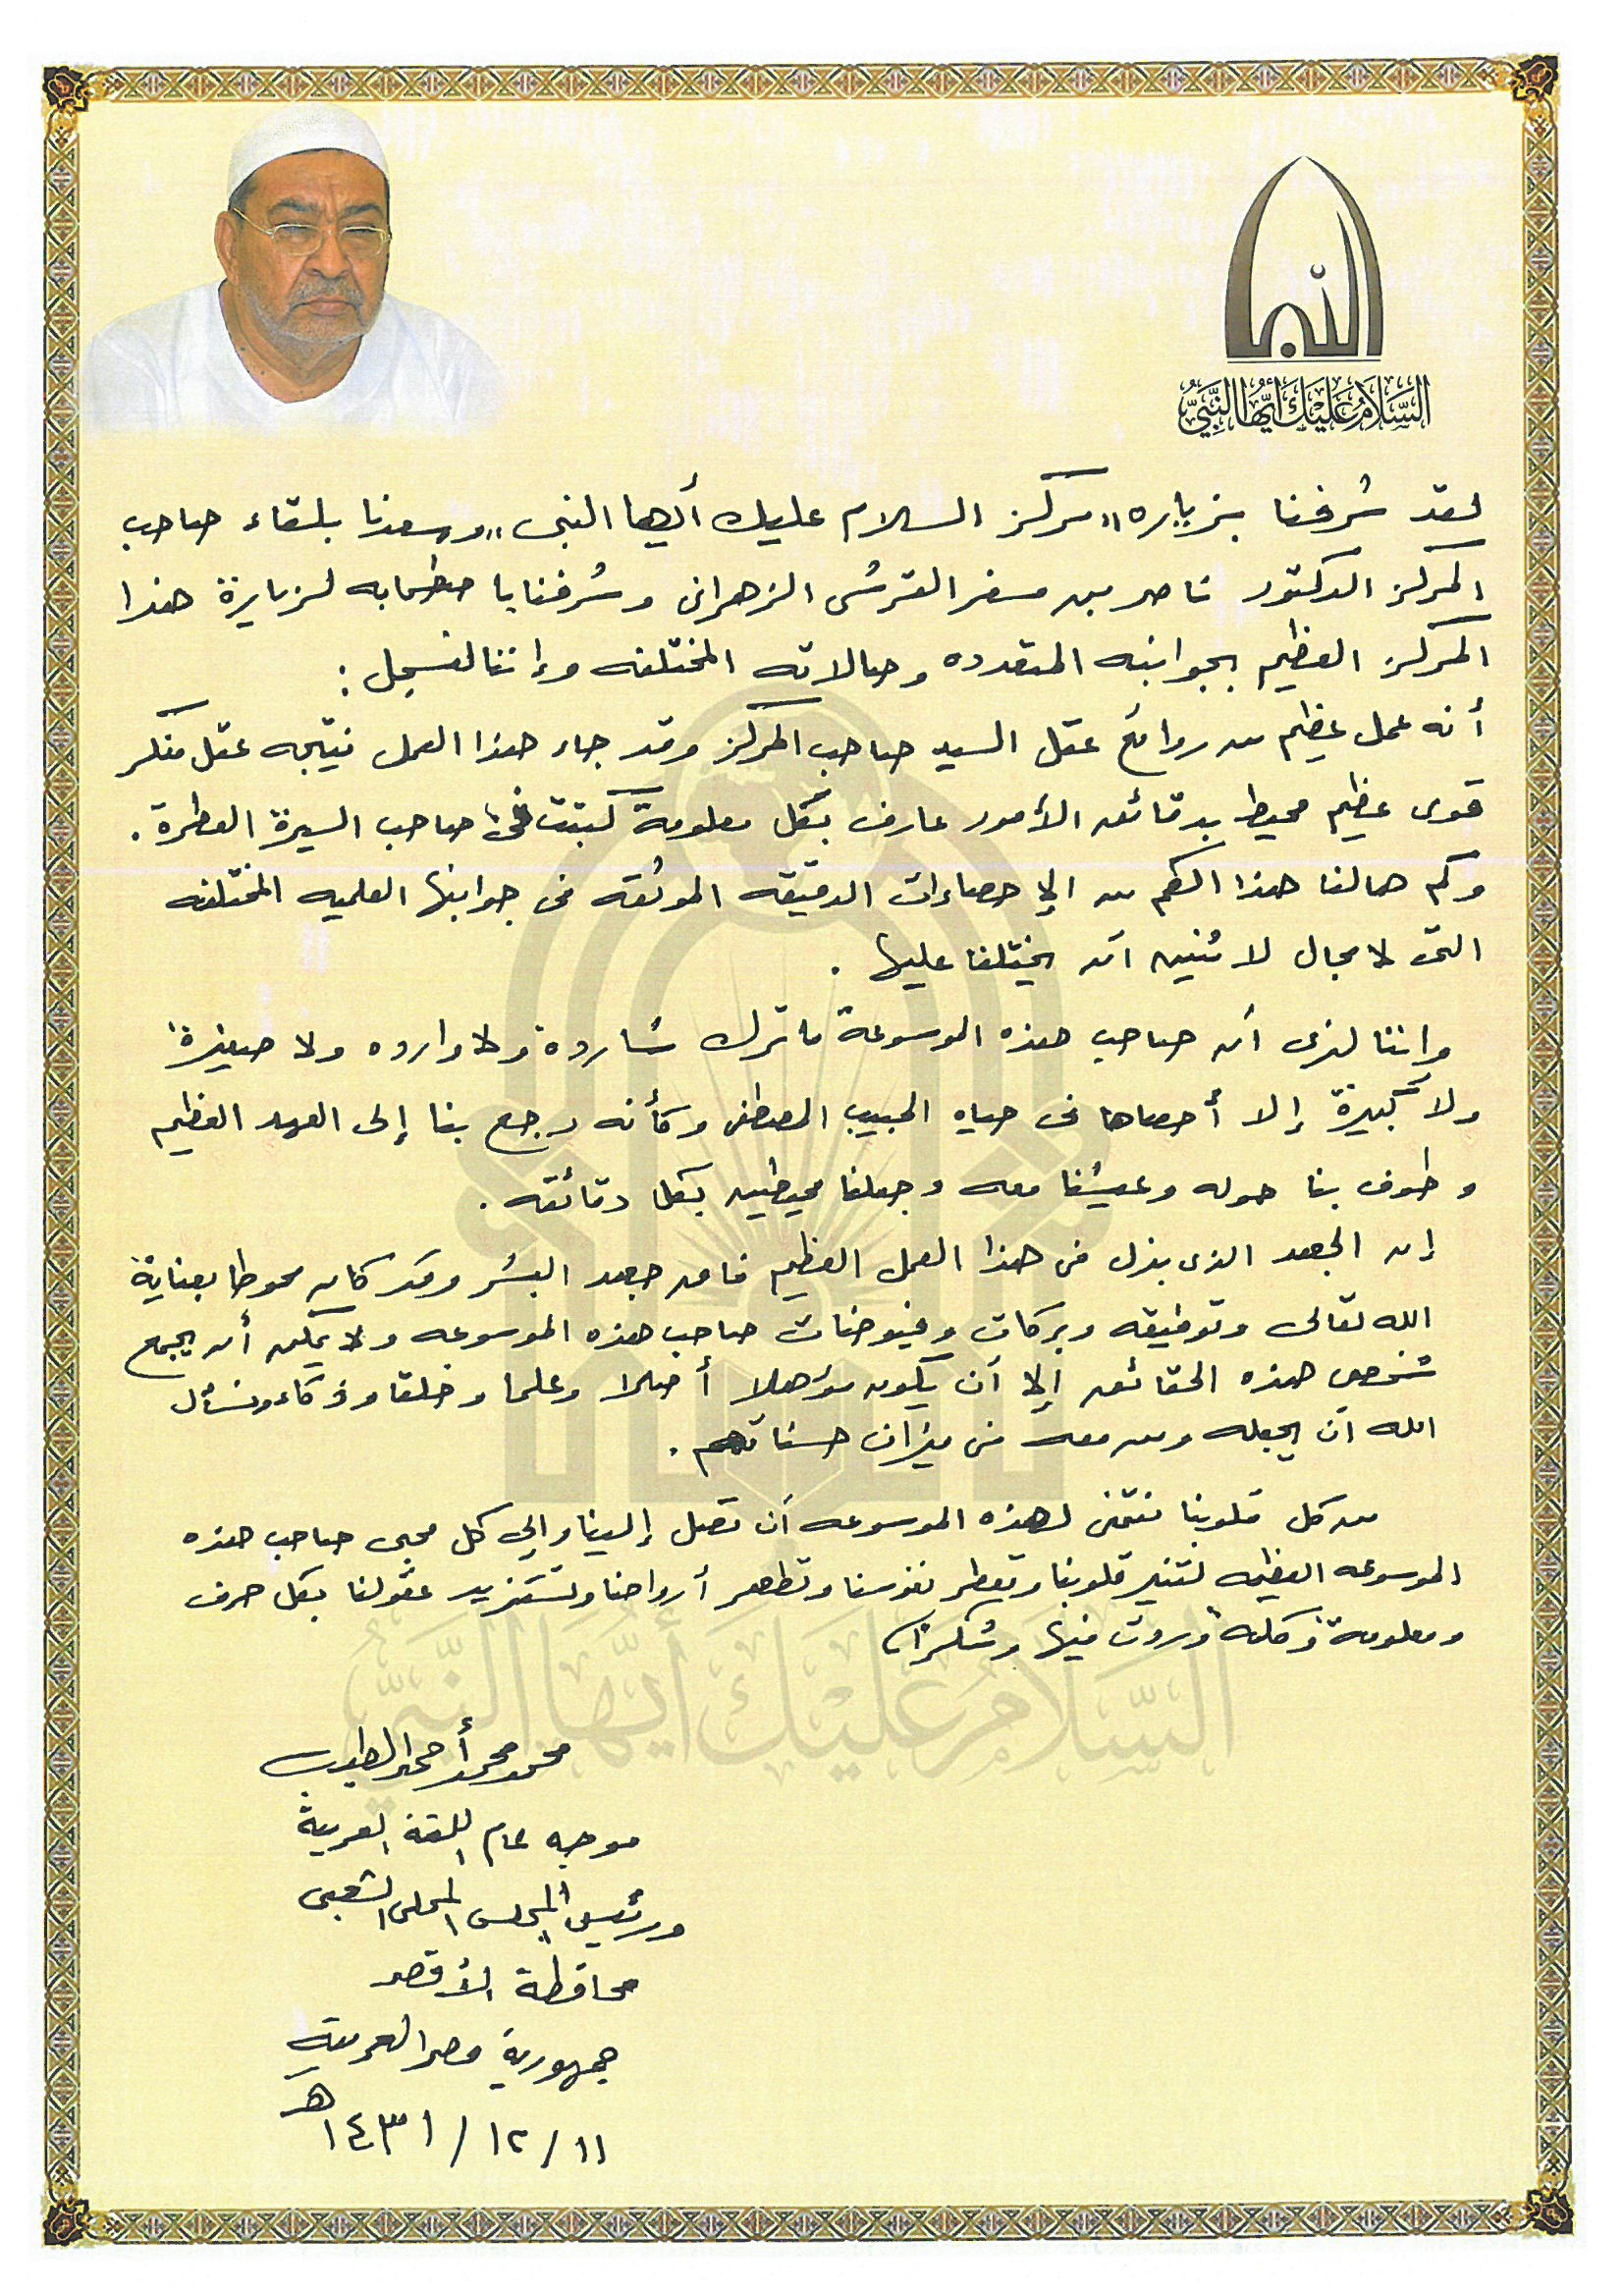 النبي
السلام عليك أيها النبي
لقد شرفنا بزياره "مركز السلام عليك أيها النبى" وسعدنا بلقاء صاحب
المركز الدكتور ناصر بن مسفر القرشى الزهرانى وشرفنا باصطحابه لزيارة هذا
المركز العظيم بجوانبه المتعدده وصالاته المختلفه وإننا لنسجل :
أنه عمل عظيم من روائع عقل السيد صاحب المركز وقد جاء هذا العمل نتيجه عقل مفكر
قوى عظيم محيط بدقائق الأمور عارف بكل معلومة كتبت فى صاحب السيرة العطرة .
وكم هالنا هذا الكم من الإحصاءات الدقيقه الموثقه فى جوانبها العلميه المختلفه
التى لا مجال لاثنين أن يختلفا عليها .
وإننا لنرى أن صاحب هذه الموسوعة ما ترك شاردة ولا وارده ولا صغيرة
ولا كبيرة إلا أحصاها فى حياه الحبيب المصطفى وكأنه رجع بنا إلى العهد العظيم
وطوف بنا حوله وعيشنا معه وجعلنا محيطين بكل دقائقه .
إن الجهد الذى بذل فى هذا العمل العظيم فاق جهد البشر وقد كان محوطا بعناية
الله تعالى وتوفيقه وبركات وفيوضات صاحب هذه الموسوعه ولا يمكن أن يجمع
شخص هذه الحقائق إلا أن يكون مؤهلا أصلا وعلما وخلقا وذكاء ونسأل
الله أن يجعله ومن معه فى ميزان حسناتهم .
من كل قلوبنا نتمنى لهذه الموسوعه أن تصل إلينا وإلى كل محبى صاحب هذه
الموسوعه العظيمه لتنير قلوبنا وتعطر نفوسنا وتطهر أرواحنا وتستزيد عقولنا بكل حرف
ومعلومة وكلمة وردت فيها وشكراً
محمد محمد أحمد الطيب
موجه عام اللغة العربية
ورئيس المجلس المحلى الشعبى
محافظة الأقصر
جمهورية مصر العربية
١١ / ١٢ / ١٤٣١ هـ
السلام عليك أيها النبي